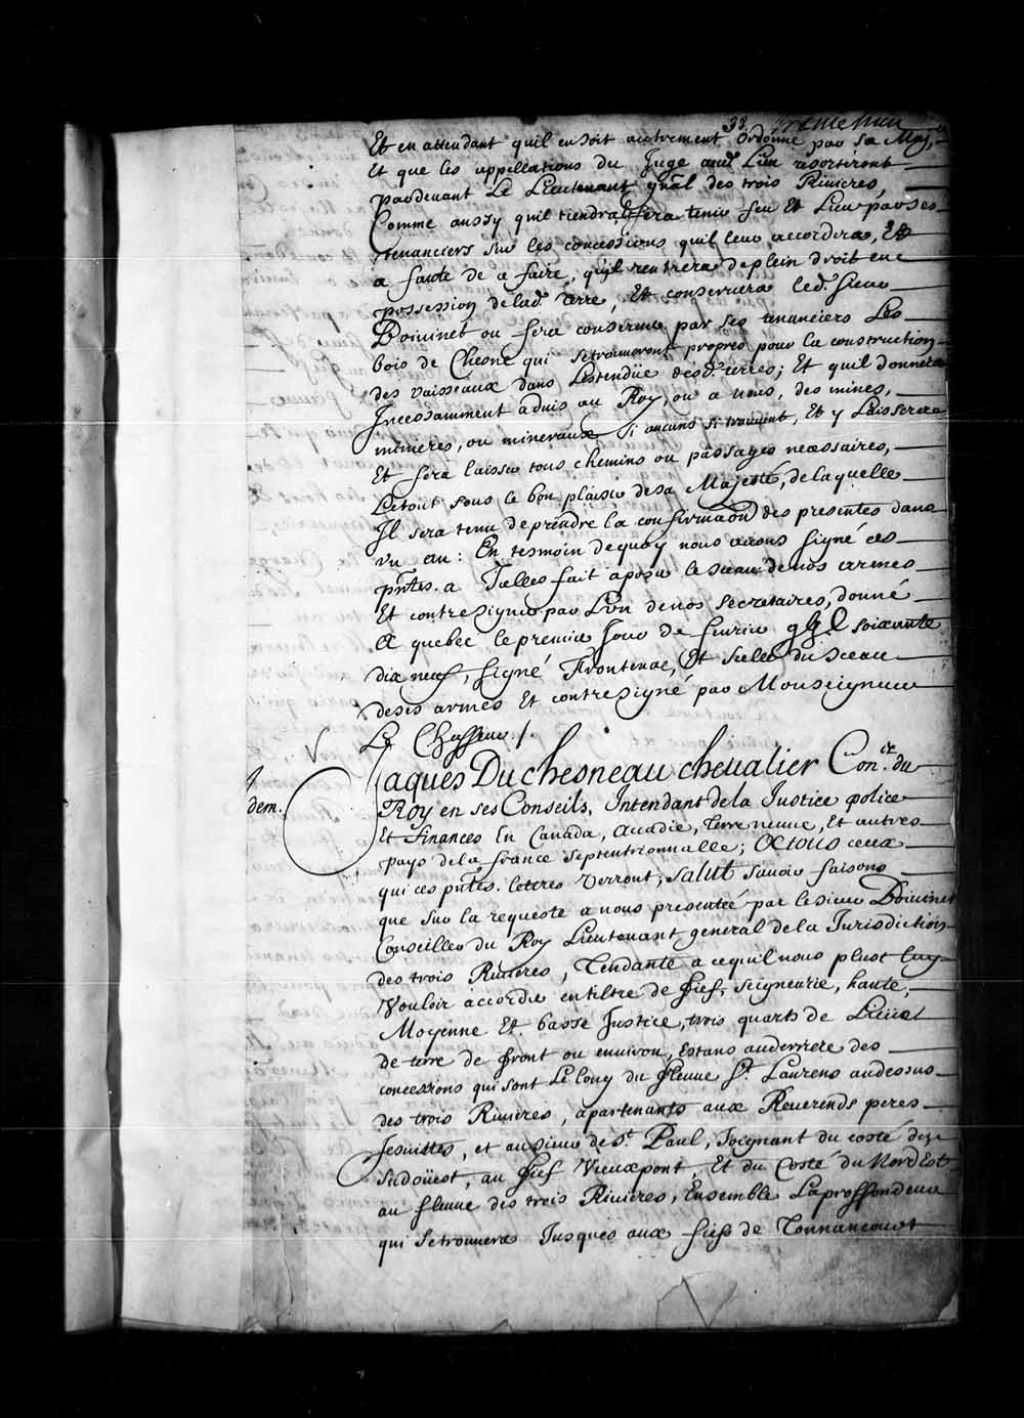 33. trente trois
Et en attendant quil en soit autrement Ordonné par Sa Maj.té
Et que les appellations du Juge aud. Lieu resortiront
pardevant Le Lieutenant gn̄al des trois Rivieres,
Comme aussy quil tiendra, & fera tenir feu Et Lieu par ses
tenanciers sur les concessions quil leur accordera, Et
a faute de ce faire, quil rentrera de plein droit en
possession de lad. terre, Et conservera led. sieur
Boivinet ou fera conserver par ses tenanciers Les
bois de Chesne qui se trouveront propres pour la construction
des vaisseaux dans L'estendüe desd. terres; Et quil donnera
Incessamment advis au Roy, ou a nous, des mines,
minieres, ou mineraux si aucuns si trouvent, Et y Laissera
Et fera laisser tous chemins ou passages necessaires,
Le tout sous le bon plaisir de sa Majesté, de laquelle
Il sera tenu de prendre la confirmaōn des presentes dans
un an: En tesmoin de quoy nous avons signé ces
pn̄tes. a Icelles fait aposer le sceau de nos armes
Et contresigner par L'un de nos Secretaires, donné
A quebec le premier Jour de fevrier gbjc soixante
dix neuf, signé Frontenac, Et scellé du sceau
de ses armes Et contresigné par Monseigneur
Le Chasseur ./.
Idem.
Jaques Duchesneau chevalier Con.er du
Roy en ses Conseils, Intendant de la Justice police
Et finances En Canada, Acadie, terre neuve, Et autres
pays de la france septentrionnalle; A tous ceux
qui ces pn̄tes. lettres verront, salut savoir faisons
que sur la requeste a nous presentée par le sieur Boivinet
Conseiller du Roy Lieutenant general de la Jurisdiction
des trois Rivieres, Tendante a ce quil nous plust luy
vouloir accorder en tiltre de fief, seigneurie, haute,
Moyenne Et basse Justice, trois quarts de Lieües
de terre de front ou environ, Estans au derriere des
concessions qui sont Le long du fleuve S.t Laurens au dessus
des trois Rivieres, apartenants aux Reverends peres
Jesuittes, et au sieur de S.t Paul, Joignant du costé du
Sudoüest, au fief Vieuxpont, Et du Costé du Nord Est
au fleuve des trois Rivieres, Ensemble La proffondeur
qui se trouvera Jusques aux fiefs de Tonnancourt